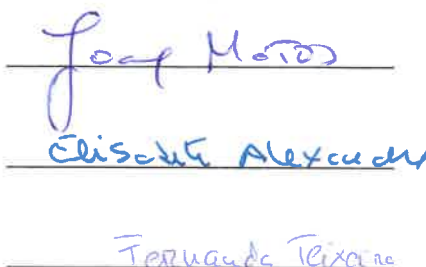 Matos
Elisabete Alexandra
Fernanda Teixeira